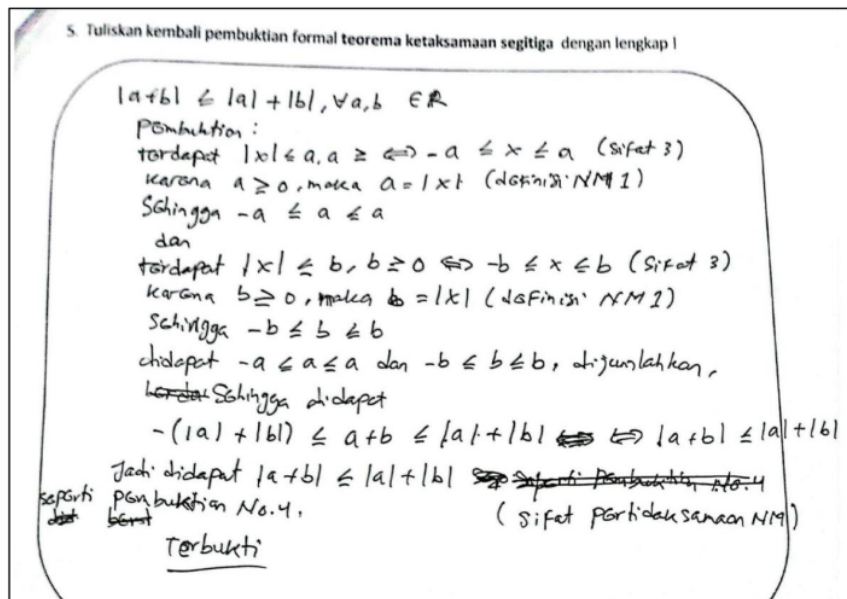 5. Tuliskan kembali pembuktian formal teorema ketaksamaan segitiga dengan lengkap !
|a+b| ≤ |a| + |b|, ∀a,b ∈ R
Pembuktian :
terdapat |x| ≤ a, a ≥ ⇔ -a ≤ x ≤ a (sifat 3)
karena a ≥ 0, maka a = |x| (definisi NM 1)
Sehingga -a ≤ a ≤ a
dan
terdapat |x| ≤ b, b ≥ 0 ⇔ -b ≤ x ≤ b (sifat 3)
karena b ≥ 0, maka b = |x| (definisi NM 1)
Sehingga -b ≤ b ≤ b
didapat -a ≤ a ≤ a dan -b ≤ b ≤ b, dijumlahkan,
Sehingga didapat
-(|a| + |b|) ≤ a+b ≤ |a| + |b| ⇔ |a+b| ≤ |a|+|b|
Jadi didapat |a+b| ≤ |a|+|b| seperti pembuktian No.4
seperti pembuktian No.4, (sifat pertidaksamaan NM)
Terbukti